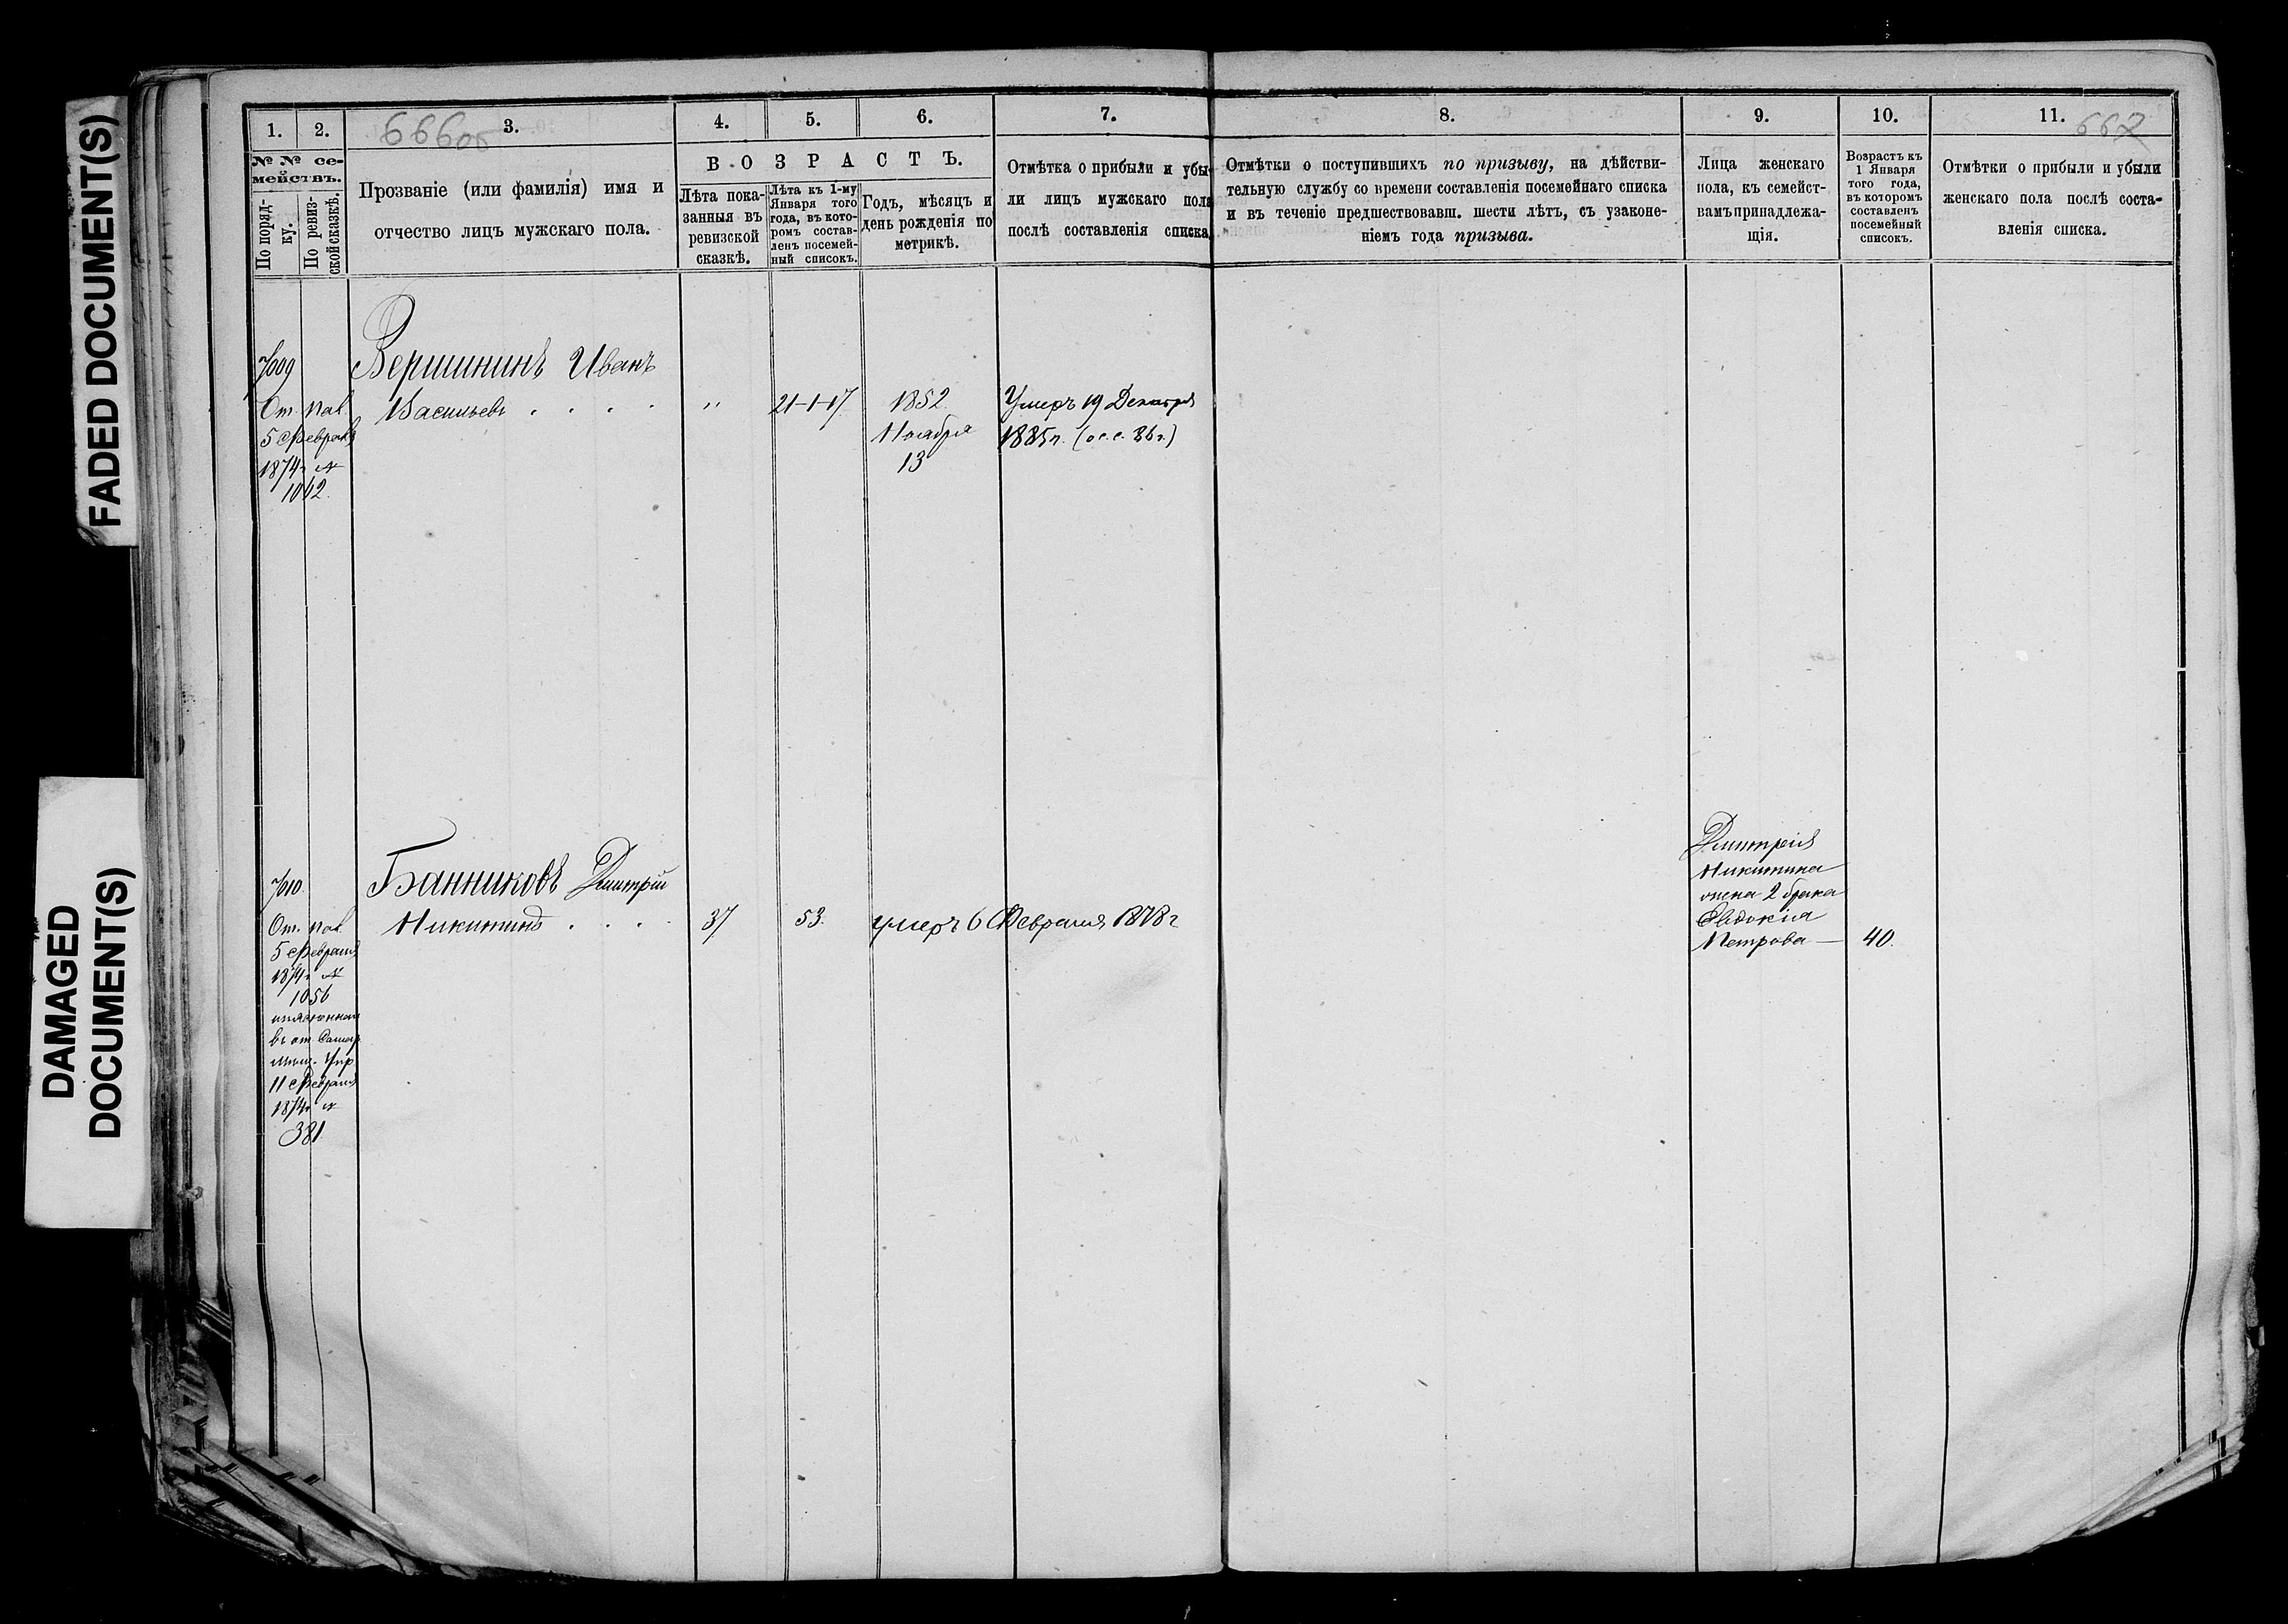 FADED DOCUMENT(S)
DAMAGED
DOCUMENT(S)
666об
667
1.
2.
3.
4.
5.
6.
7.
8.
9.
10.
11.
№ № се-
мействъ.
По поряд-
ку.
По ревиз-
ской сказкѣ.
Прозваніе (или фамилія) имя и
отчество лицъ мужскаго пола.
ВОЗРАСТЪ.
Лѣта пока-
занныя въ
ревизской
сказкѣ.
Лѣта къ 1-му
Января того
года, въ кото-
ромъ состав-
ленъ посемей-
ный списокъ.
Годъ, мѣсяцъ и
день рожденія по
метрикѣ.
Отмѣтка о прибыли и убы-
ли лицъ мужскаго пола
послѣ составленія списка.
Отмѣтки о поступившихъ по призыву, на дѣйстви-
тельную службу со времени составленія посемейнаго списка
и въ теченіе предшествовавш. шести лѣтъ, съ узаконе-
ніемъ года призыва.
Лица женскаго
пола, къ семейст-
вамъ принадлежа-
щія.
Возрастъ къ
1 Января
того года,
въ которомъ
составленъ
посемейный
списокъ.
Отмѣтки о прибыли и убыли
женскаго пола послѣ соста-
вленія списка.
7009
Вершининъ Иванъ
Васильевъ . . . .
От. пал.
5 Февраля
1874 г. №
1062.
"
21-1-17
1852
Ноября
13
Умеръ 19 Декабря
1885 г.
7010.
Банниковъ Дмитрій
Никитинъ . . . .
От. пал.
5 Февраля
1874 г. №
1056
11 Февраля
1874 г. №
381.
37
53.
умеръ 6 Февраля 1878 г
Дмитрія
Никитина
жена 2 брака
Евдокія
Петрова —
40.